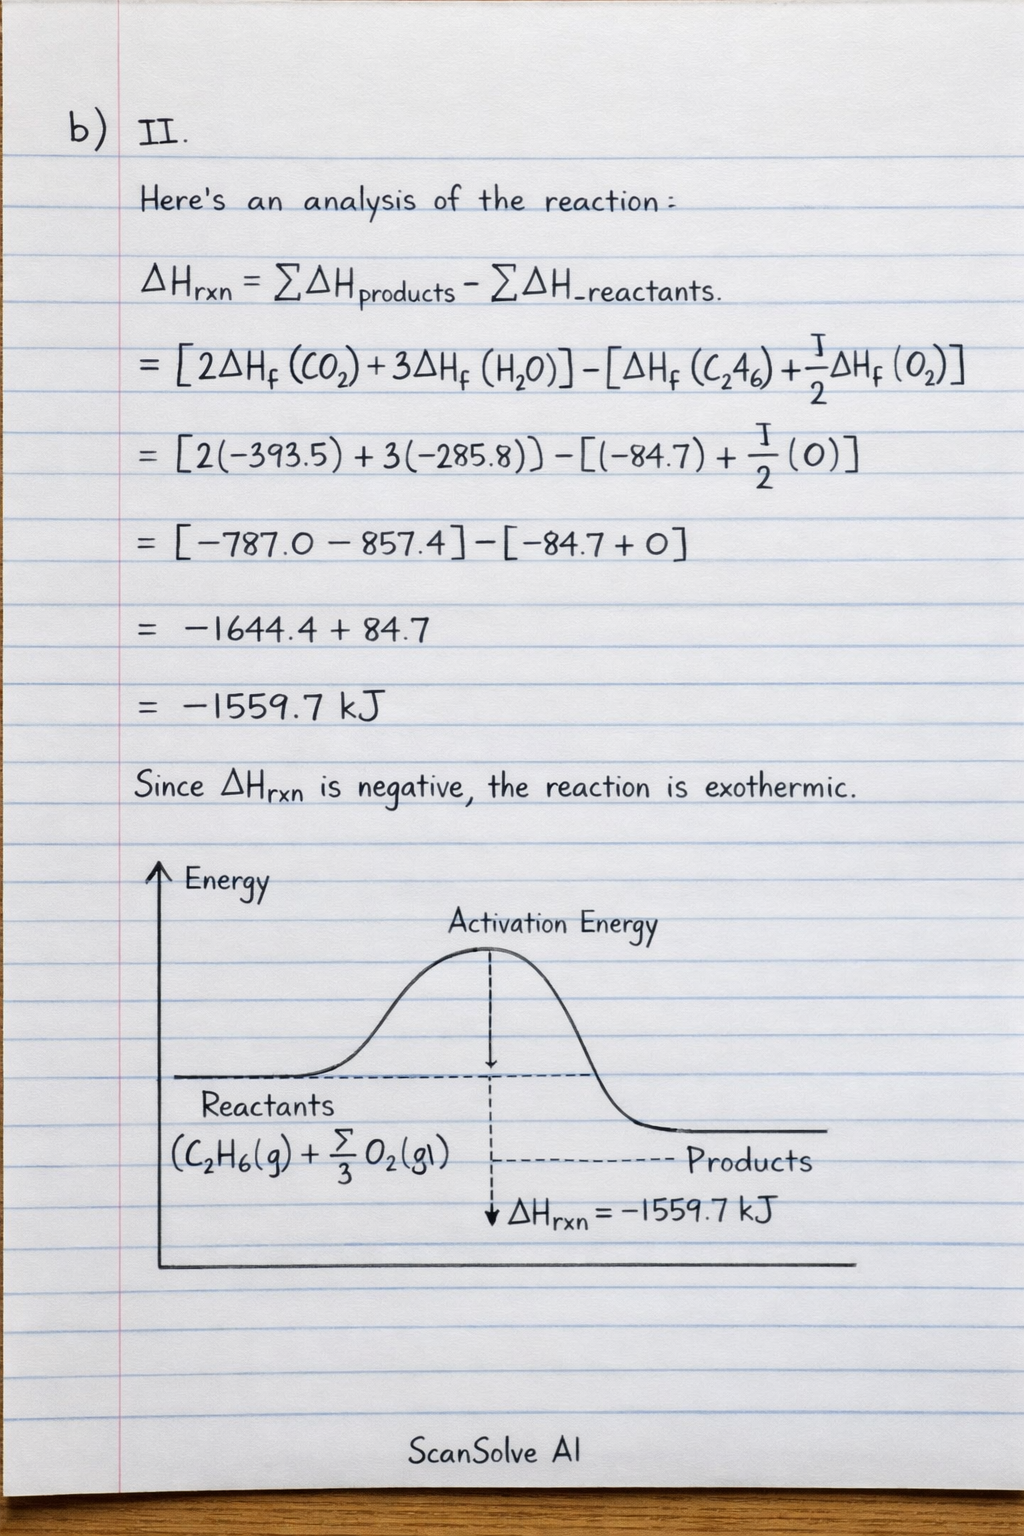 b) II.
Here's an analysis of the reaction:
ΔH_rxn = ∑ΔH_products - ∑ΔH_-reactants.
= [2ΔH_f (CO₂) + 3ΔH_f (H₂O)] - [ΔH_f (C₂4₆) + I/2 ΔH_f (O₂)]
= [2(-393.5) + 3(-285.8)) - [(-84.7) + I/2 (0)]
= [-787.0 - 857.4] - [-84.7 + 0]
= -1644.4 + 84.7
= -1559.7 kJ
Since ΔH_rxn is negative, the reaction is exothermic.
Energy
Activation Energy
Reactants
(C₂H₆(g) + Σ/3 O₂(gl)
Products
ΔH_rxn = -1559.7 kJ
ScanSolve AI